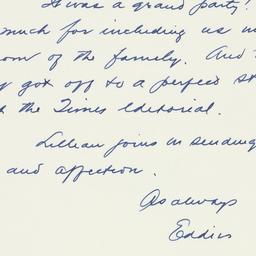 It was a grand party!
much for including us in
of the family. And
got off to a perfect st
the Times Editorial.
Lillian joins in sending
and affection.
As always
Eddie